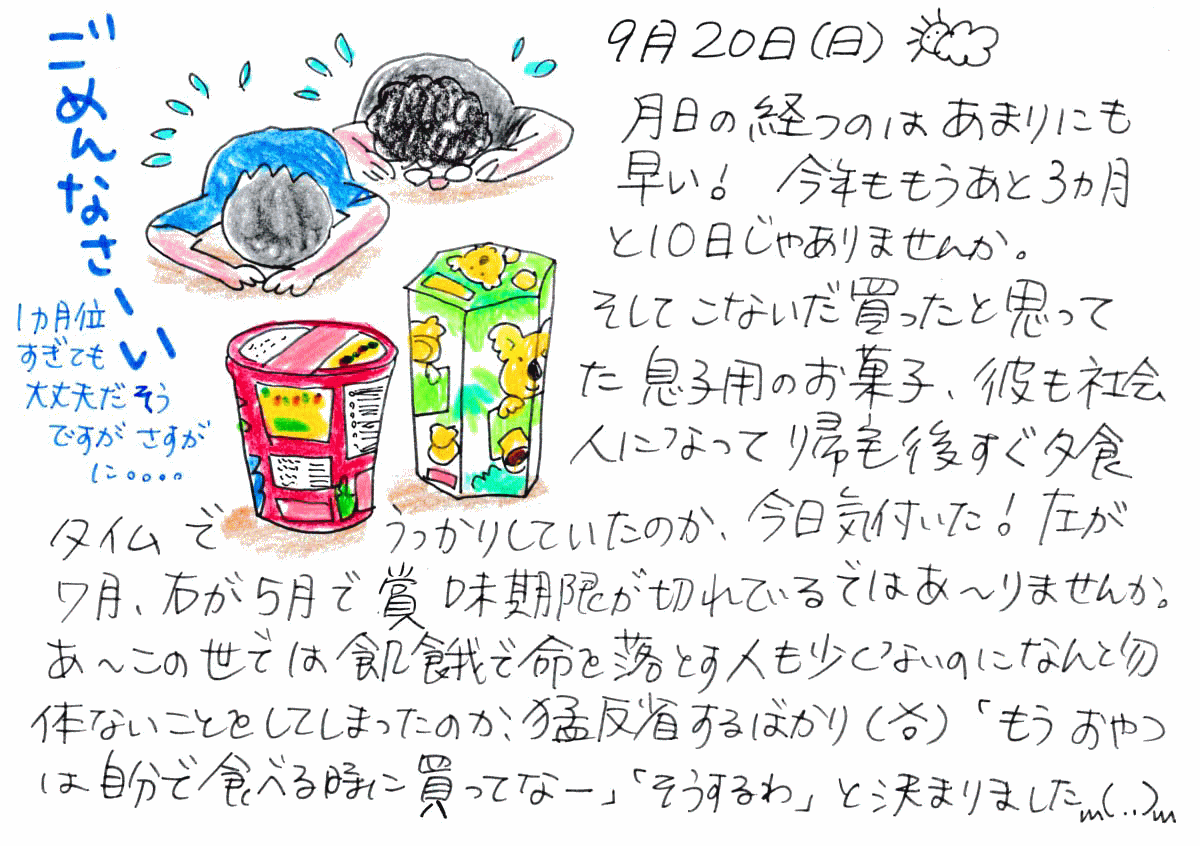 ごめんなさーい
1ヵ月位
すぎても
大丈夫だそう
ですが さすが
に。。。。
9月20日(日)
月日の経つのは あまりにも
早い! 今年ももうあと3ヵ月
と10日じゃありませんか。
そしてこないだ買ったと思って
た息子用のお菓子、彼も社会
人になって帰宅後すぐ夕食
タイムで うっかりしていたのか、今日気付いた!左が
7月、右が5月で賞味期限が切れているではあ〜りませんか。
あ〜この世では飢餓で命を落とす人も少くないのになんと勿
体ないことをしてしまったのか、猛反省するばかり(答)「もう おやつ
は自分で食べる時に買ってなー」「そうするわ」と決まりました m(..)m